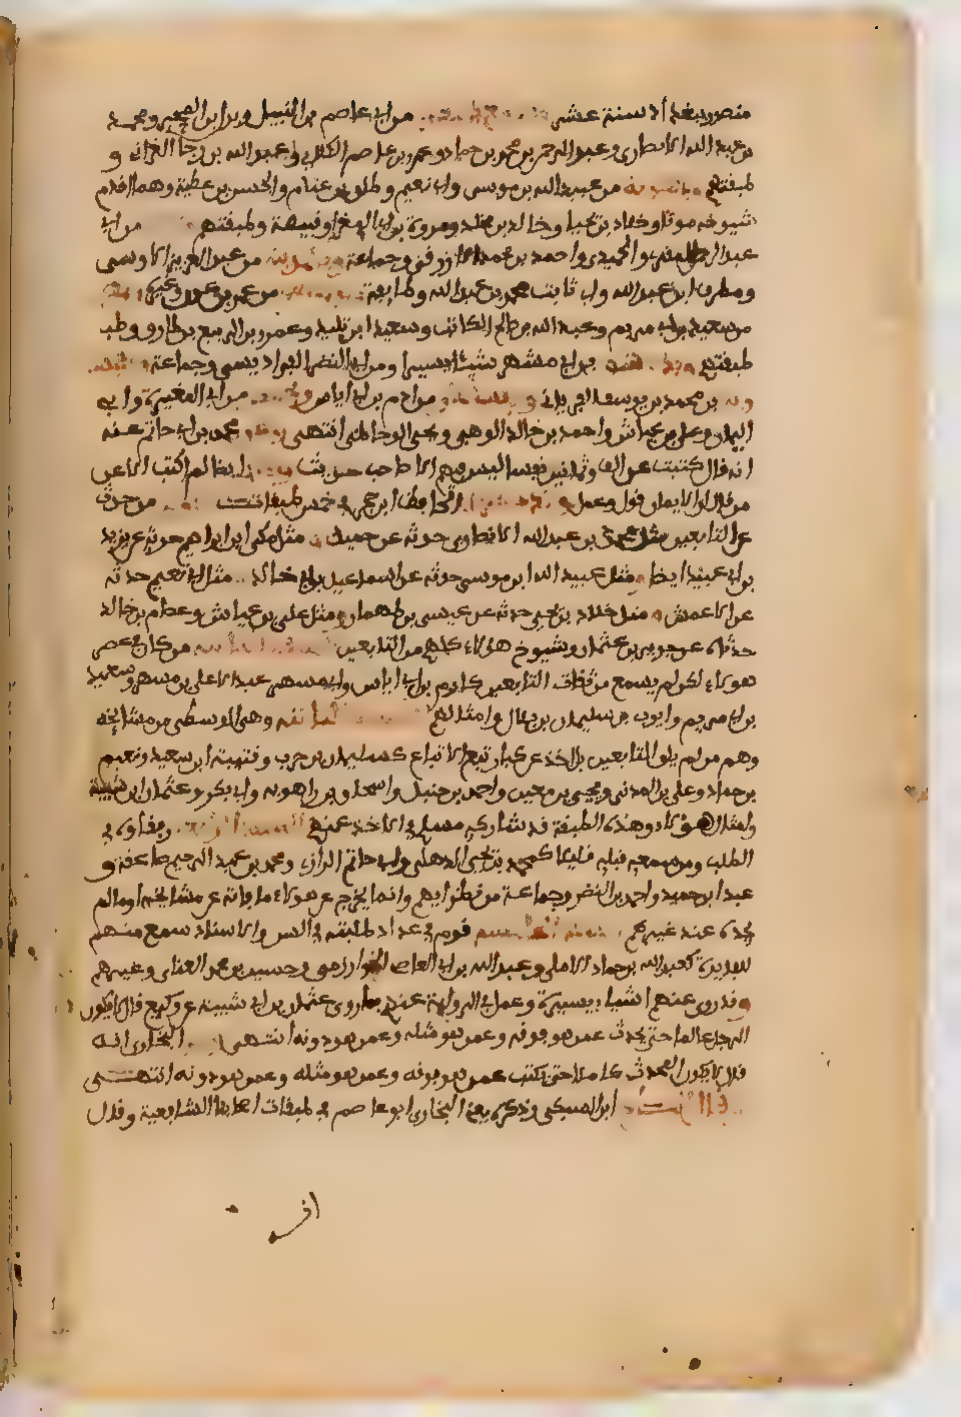 منصور ببغداد سنة عشر من ابي عاصم بن النبيل وبر ابن المحبر ومحمد
بن عبد الله الانصاري وعبد الرحمن بن محمد بن حماد وعمرو بن عاصم الكلابي وعبد الله بن رجا الغداني و
طبقتهم من عبيد الله بن موسى وابي نعيم وطلق بن غنام والحسن بن عطية وهما اقدم
شيوخه موتا وخلاد بن يحيا وخالد بن مخلد وفروة بن ابي المغرا وقبيصة وطبقتهم من ابي
عبد الرحمن المقرئ والحميدي واحمد بن محمد الازرقي وجماعة من عبد العزيز الاويسي
ومطرف ابن عبد الله وابي ثابت محمد بن عبد الله وطايفة
من سعيد بن ابي مريم وعبد الله بن صالح الكاتب وسعيد ابن تليد وعمرو بن الربيع بن طارق وطب
طبقتهم من ابي مسهر شيئا يسيرا ومن ابي النضر الفراديسي وجماعة
بن محمد بن يوسف الفريابي من ادم بن ابي اياس من ابي المغيرة وابي
اليمان وعلي بن عياش واحمد بن خالد الوهبي ويحيى الوحاظي انتهى محمد بن ابي حاتم عنه
انه قال كتبت عن الف وثمانين نفسا ليس فيهم الا صاحب حديث ايضا لم اكتب الا عن
من قال الايمان قول وعمل الحافظ ابن حجر في خمس طبقات من حدثه
عن التابعين مثل محمد بن عبد الله الانصاري حدثه عن حميد مثل مكي ابن ابراهيم حدثه عن يزيد
بن ابي عبيد ايضا مثل عبيد الله ابن موسى حدثه عن اسماعيل بن ابي خالد مثل ابي نعيم حدثه
عن الاعمش مثل خلاد بن يحيى حدثه عن عيسى بن طهمان ومثل علي بن عياش وعصام بن خالد
حدثاه عن حريز بن عثمان وشيوخ هاولاء كلهم من التابعين من كان في عصر
هولاء لكن لم يسمع من ثقات التابعين كادم بن ابي اياس وابي مسهر عبد الاعلى بن مسهر وسعيد
بن ابي مريم وايوب بن سليمان بن بلال وامثالهم وهي الوسطى من مشايخه
وهم من لم يلق التابعين بل اخذ عن كبار تبع الاتباع كسليمان بن حرب وقتيبة ابن سعيد ونعيم
بن حماد وعلي بن المديني ويحيى بن معين واحمد بن حنبل واسحاق بن راهويه وابي بكر وعثمان ابن شيبة
وامثال هولاء وهذه الطبقة قد شاركه مسلم في الاخذ عنهم رفقاوه في
الطلب ومن سمع قبله قليلا كمحمد بن يحيى الذهلي وابي حاتم الرازي ومحمد بن عبد الرحيم صاعقة و
عبد ابن حميد واحمد بن النضر وجماعة من نظرايهم وانما يخرج عن هولاء ما فاته عن مشايخه او ما لم
يجده عند غيرهم قوم في عداد طلبته في السن والاسناد سمع منهم
للفايدة كعبد الله بن حماد الاملي وعبد الله بن ابي العاص الخوارزمي وحسين بن محمد القباني وغيرهم
وقد روى عنهم اشياء يسيرة وعمل في الرواية عنهم بما روى عثمان بن ابي شيبة عن وكيع قال لا يكون
الرجل عالما حتى يحدث عمن هو فوقه وعمن هو مثله وعمن هو دونه انتهى البخاري انه
قال لا يكون المحدث كاملا حتى يكتب عمن هو فوقه وعمن هو مثله وعمن هو دونه انتهى
ابن السبكي وذكره يعني البخاري ابو عاصم في طبقات اصحابنا الشافعية وقال